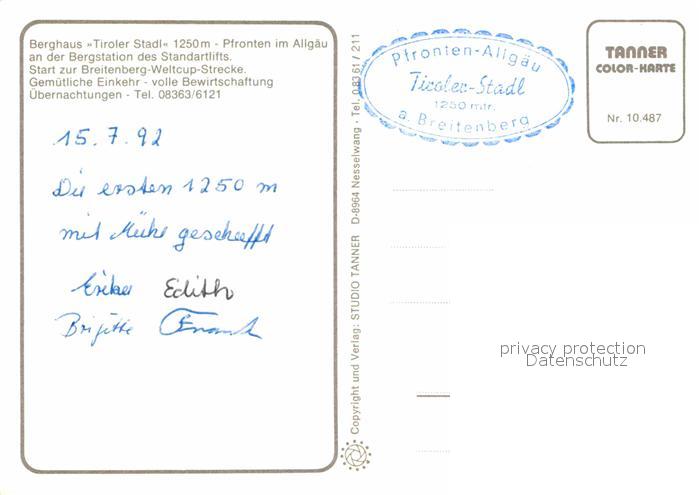 Berghaus »Tiroler Stadl« 1250 m - Pfronten im Allgäu
an der Bergstation des Standartlifts.
Start zur Breitenberg-Weltcup-Strecke.
Gemütliche Einkehr - volle Bewirtschaftung
Übernachtungen - Tel. 08363/6121
15.7.92
Die ersten 1250 m
mit Mühe gescheefft
Erika Edith
Brigitte Frank
Copyright und Verlag: STUDIO TANNER D-8964 Nesselwang · Tel. 08361/211
Pfronten-Allgäu
Tiroler-Stadl
1250 mtr.
a. Breitenberg
TANNER
COLOR-KARTE
Nr. 10.487
privacy protection
Datenschutz